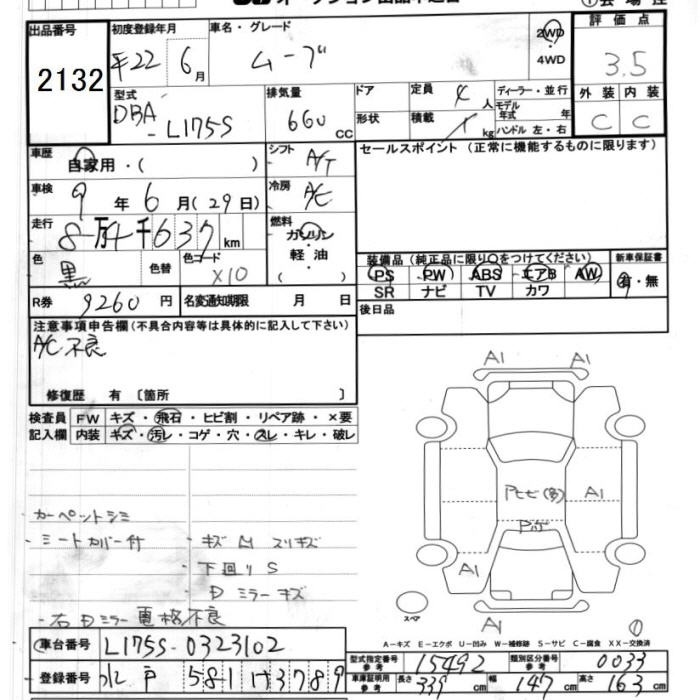 出品番号
2132
初度登録年月
平22 6月
車名・グレード
ムーブ
2WD
・
4WD
評価点
3.5
外装 内装
C C
型式
DBA-L175S
排気量
660 CC
ドア
形状
定員 4人
積載 kg
ディーラー・並行
モデル
年式 年
ハンドル 左・右
車歴
自家用・( )
シフト A/T
セールスポイント(正常に機能するものに限ります)
車検
9年 6月(29日)
冷房 A/C
走行
8万4千637km
燃料
ガソリン
軽・油
( )
色 黒
色替
色コード X10
装備品(純正品に限り○をつけてください)
新車保証書
PS PW ABS エアB AW
有・無
SR ナビ TV カワ
R券 9260円
名変通知期限 月 日
後日品
注意事項申告欄(不具合内容等は具体的に記入して下さい)
A/C不良
修復歴 有〔箇所 〕
検査員
記入欄
FW キズ・飛石・ヒビ割・リペア跡・×要
内装 キズ・汚レ・コゲ・穴・スレ・キレ・破レ
カーペットシミ
・シートカバー付
・キズ 凹 スリキズ
・下回り S
・Dミラーキズ
・右Dミラー 格不良
A1 A1
A1
A1
A1
スペア
0
A-キズ E-エクボ U-凹み W-補修跡 S-サビ C-腐食 XX-交換済
車台番号
L175S-0323102
登録番号
水戸 581 3789
型式指定番号
参考
15492
類別区分番号
参考
0033
車庫証明用
参考
長さ 339cm
幅 147cm
高さ 163cm